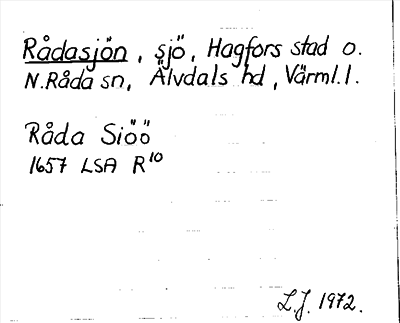 Rådasjön, sjö, Hagfors stad o.
N. Råda sn, Älvdals hd, Värml. l.
Råda Siöö
1657 LSA R10
L.J. 1972.